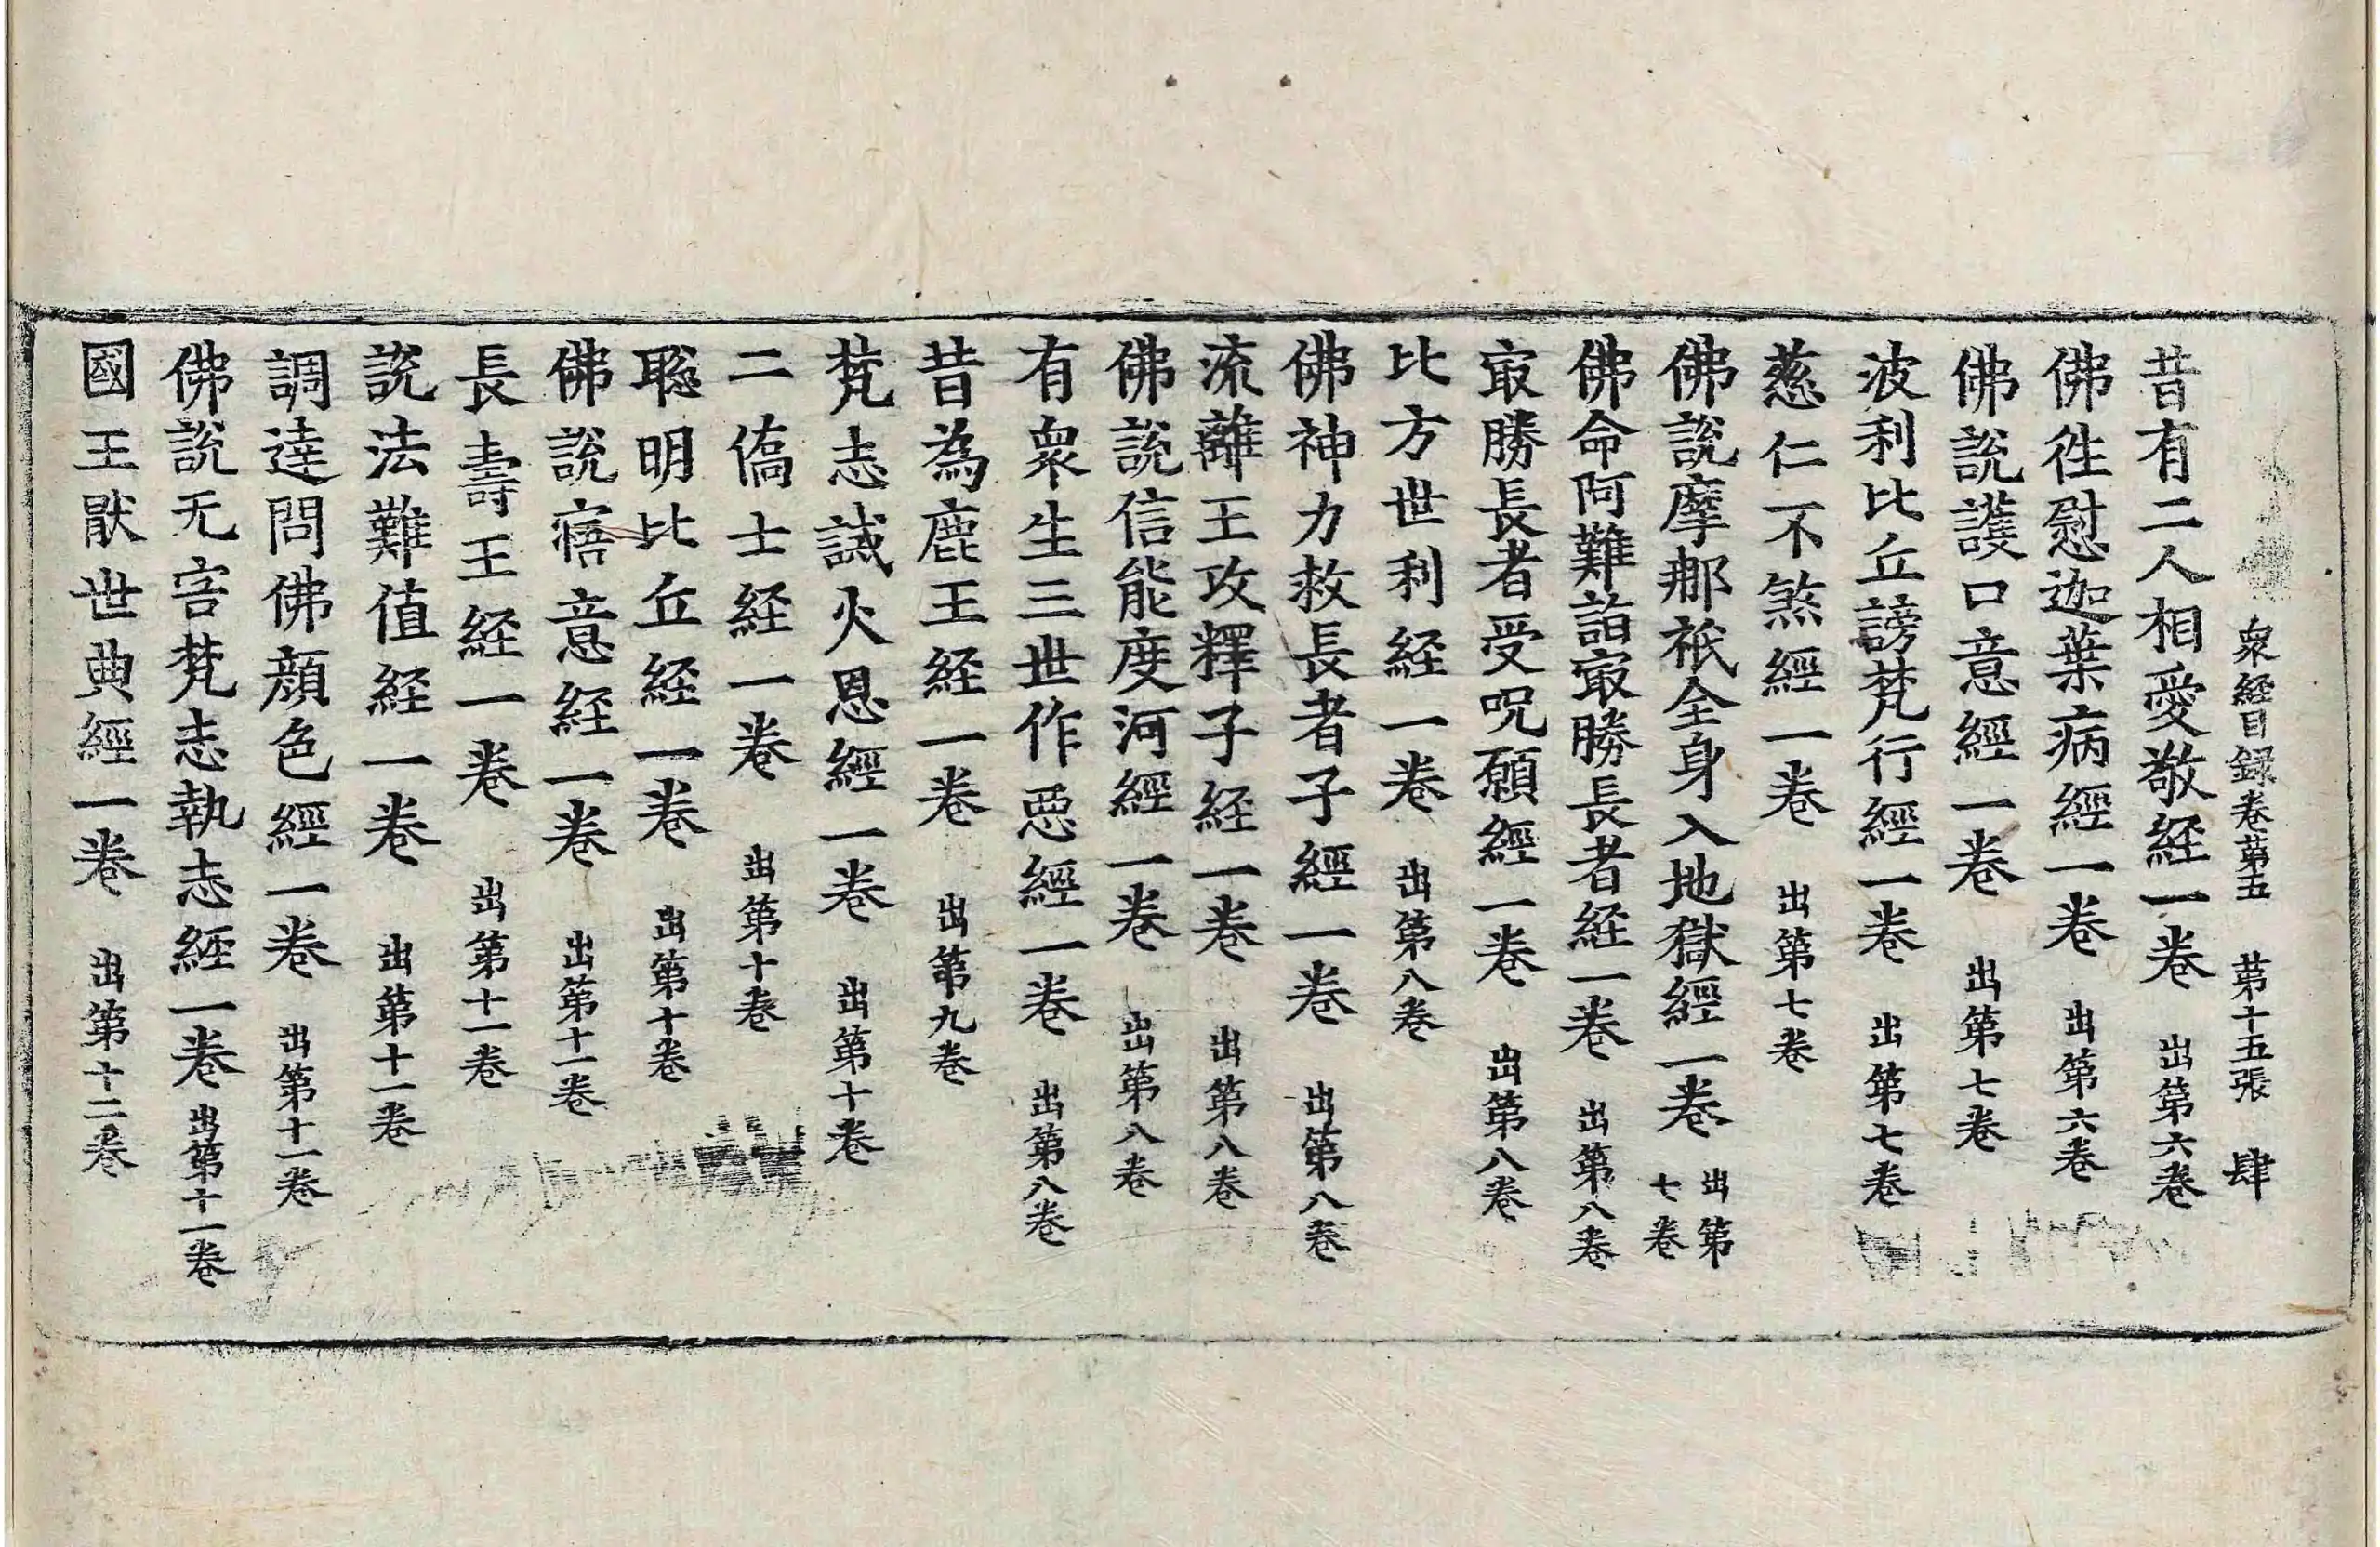 衆經目録卷第五 第十五張 肆
昔有二人相愛敬経一卷 出第六卷
佛徃慰迦葉病經一卷 出第六卷
佛說護口意經一卷 出第七卷
波利比丘謗梵行經一卷 出第七卷
慈仁不煞經一卷 出第七卷
佛說摩那祇全身入地獄經一卷 出第七卷
佛命阿難詣冣勝長者経一卷 出第八卷
冣勝長者受呪願經一卷 出第八卷
比方世利経一卷 出第八卷
佛神力救長者子經一卷 出第八卷
流離王攻釋子経一卷 出第八卷
佛說信能度河經一卷 出第八卷
有衆生三世作惡經一卷 出第八卷
昔為鹿王経一卷 出第九卷
梵志誡火恩經一卷 出第十卷
二僑士経一卷 出第十卷
聡明比丘経一卷 出第十卷
佛說寤意経一卷 出第十一卷
長壽王経一卷 出第十一卷
說法難值経一卷 出第十一卷
調達問佛顔色經一卷 出第十一卷
佛說无害梵志執志経一卷 出第十一卷
國王猒世典經一卷 出第十二卷